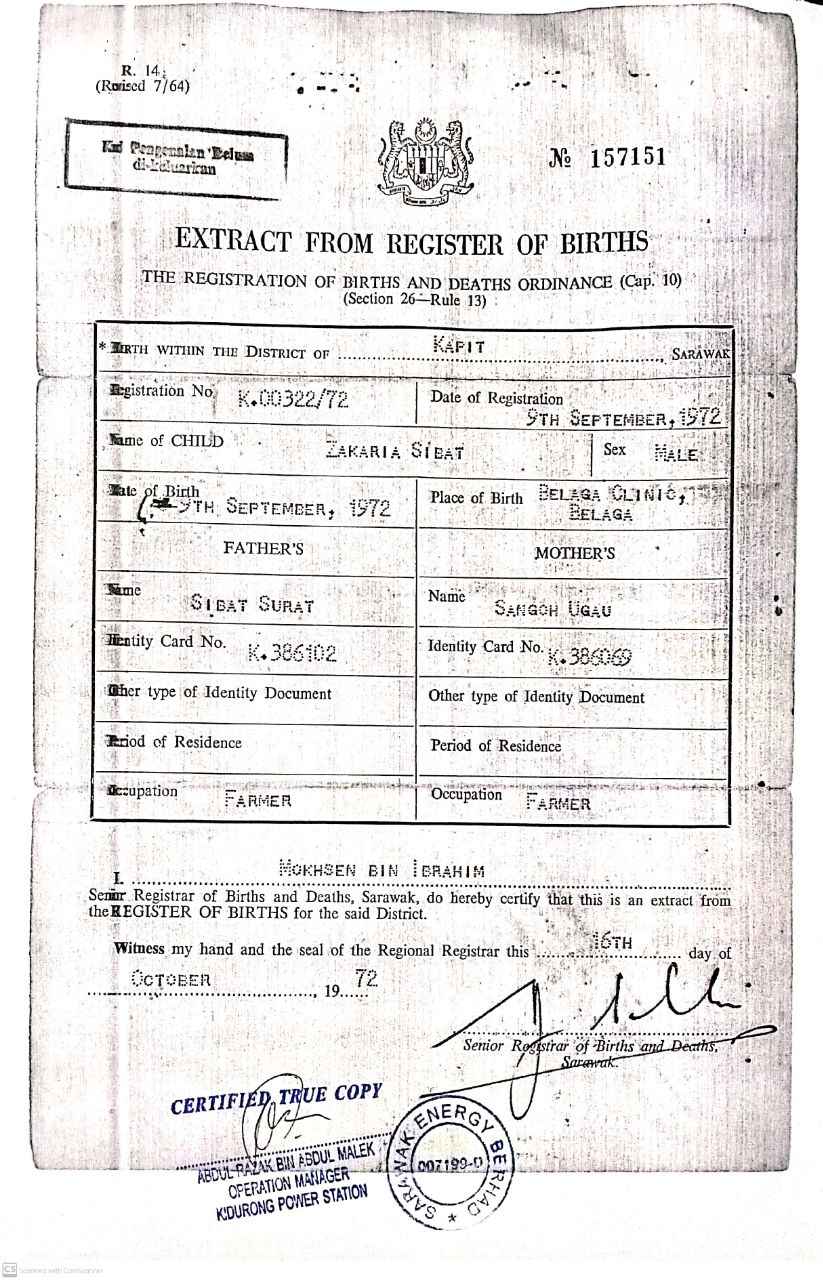 R. 14.
(Revised 7/64)
Kad Pengenalan Belum
di-keluarkan
№ 157151
EXTRACT FROM REGISTER OF BIRTHS
THE REGISTRATION OF BIRTHS AND DEATHS ORDINANCE (Cap. 10)
(Section 26—Rule 13)
* BIRTH WITHIN THE DISTRICT OF KAPIT, SARAWAK
Registration No. K.00322/72
Date of Registration
9TH SEPTEMBER, 1972
Name of CHILD ZAKARIA SIBAT
Sex MALE
Date of Birth
9TH SEPTEMBER, 1972
Place of Birth BELAGA CLINIC,
BELAGA
FATHER'S
MOTHER'S
Name
SIBAT SURAT
Name
SANGOH UGAU
Identity Card No. K.386102
Identity Card No. K.386069
Other type of Identity Document
Other type of Identity Document
Period of Residence
Period of Residence
Occupation FARMER
Occupation FARMER
I. MOKHSEN BIN IBRAHIM
Senior Registrar of Births and Deaths, Sarawak, do hereby certify that this is an extract from
the REGISTER OF BIRTHS for the said District.
Witness my hand and the seal of the Regional Registrar this 16TH day of
OCTOBER, 19 72
Senior Registrar of Births and Deaths,
Sarawak.
CERTIFIED TRUE COPY
ABDUL RAZAK BIN ABDUL MALEK
OPERATION MANAGER
KIDURONG POWER STATION
SARAWAK ENERGY BERHAD
007199-D
CS Scanned with CamScanner